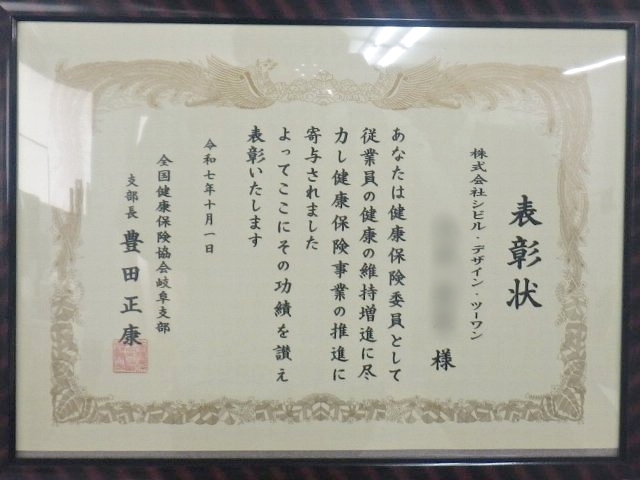 表彰状
株式会社シビル・デザイン・ツーワン
様
あなたは健康保険委員として
従業員の健康の維持増進に尽
力し健康保険事業の推進に
寄与されました
よってここにその功績を讃え
表彰いたします
令和七年十月一日
全国健康保険協会岐阜支部
支部長 豊田正康